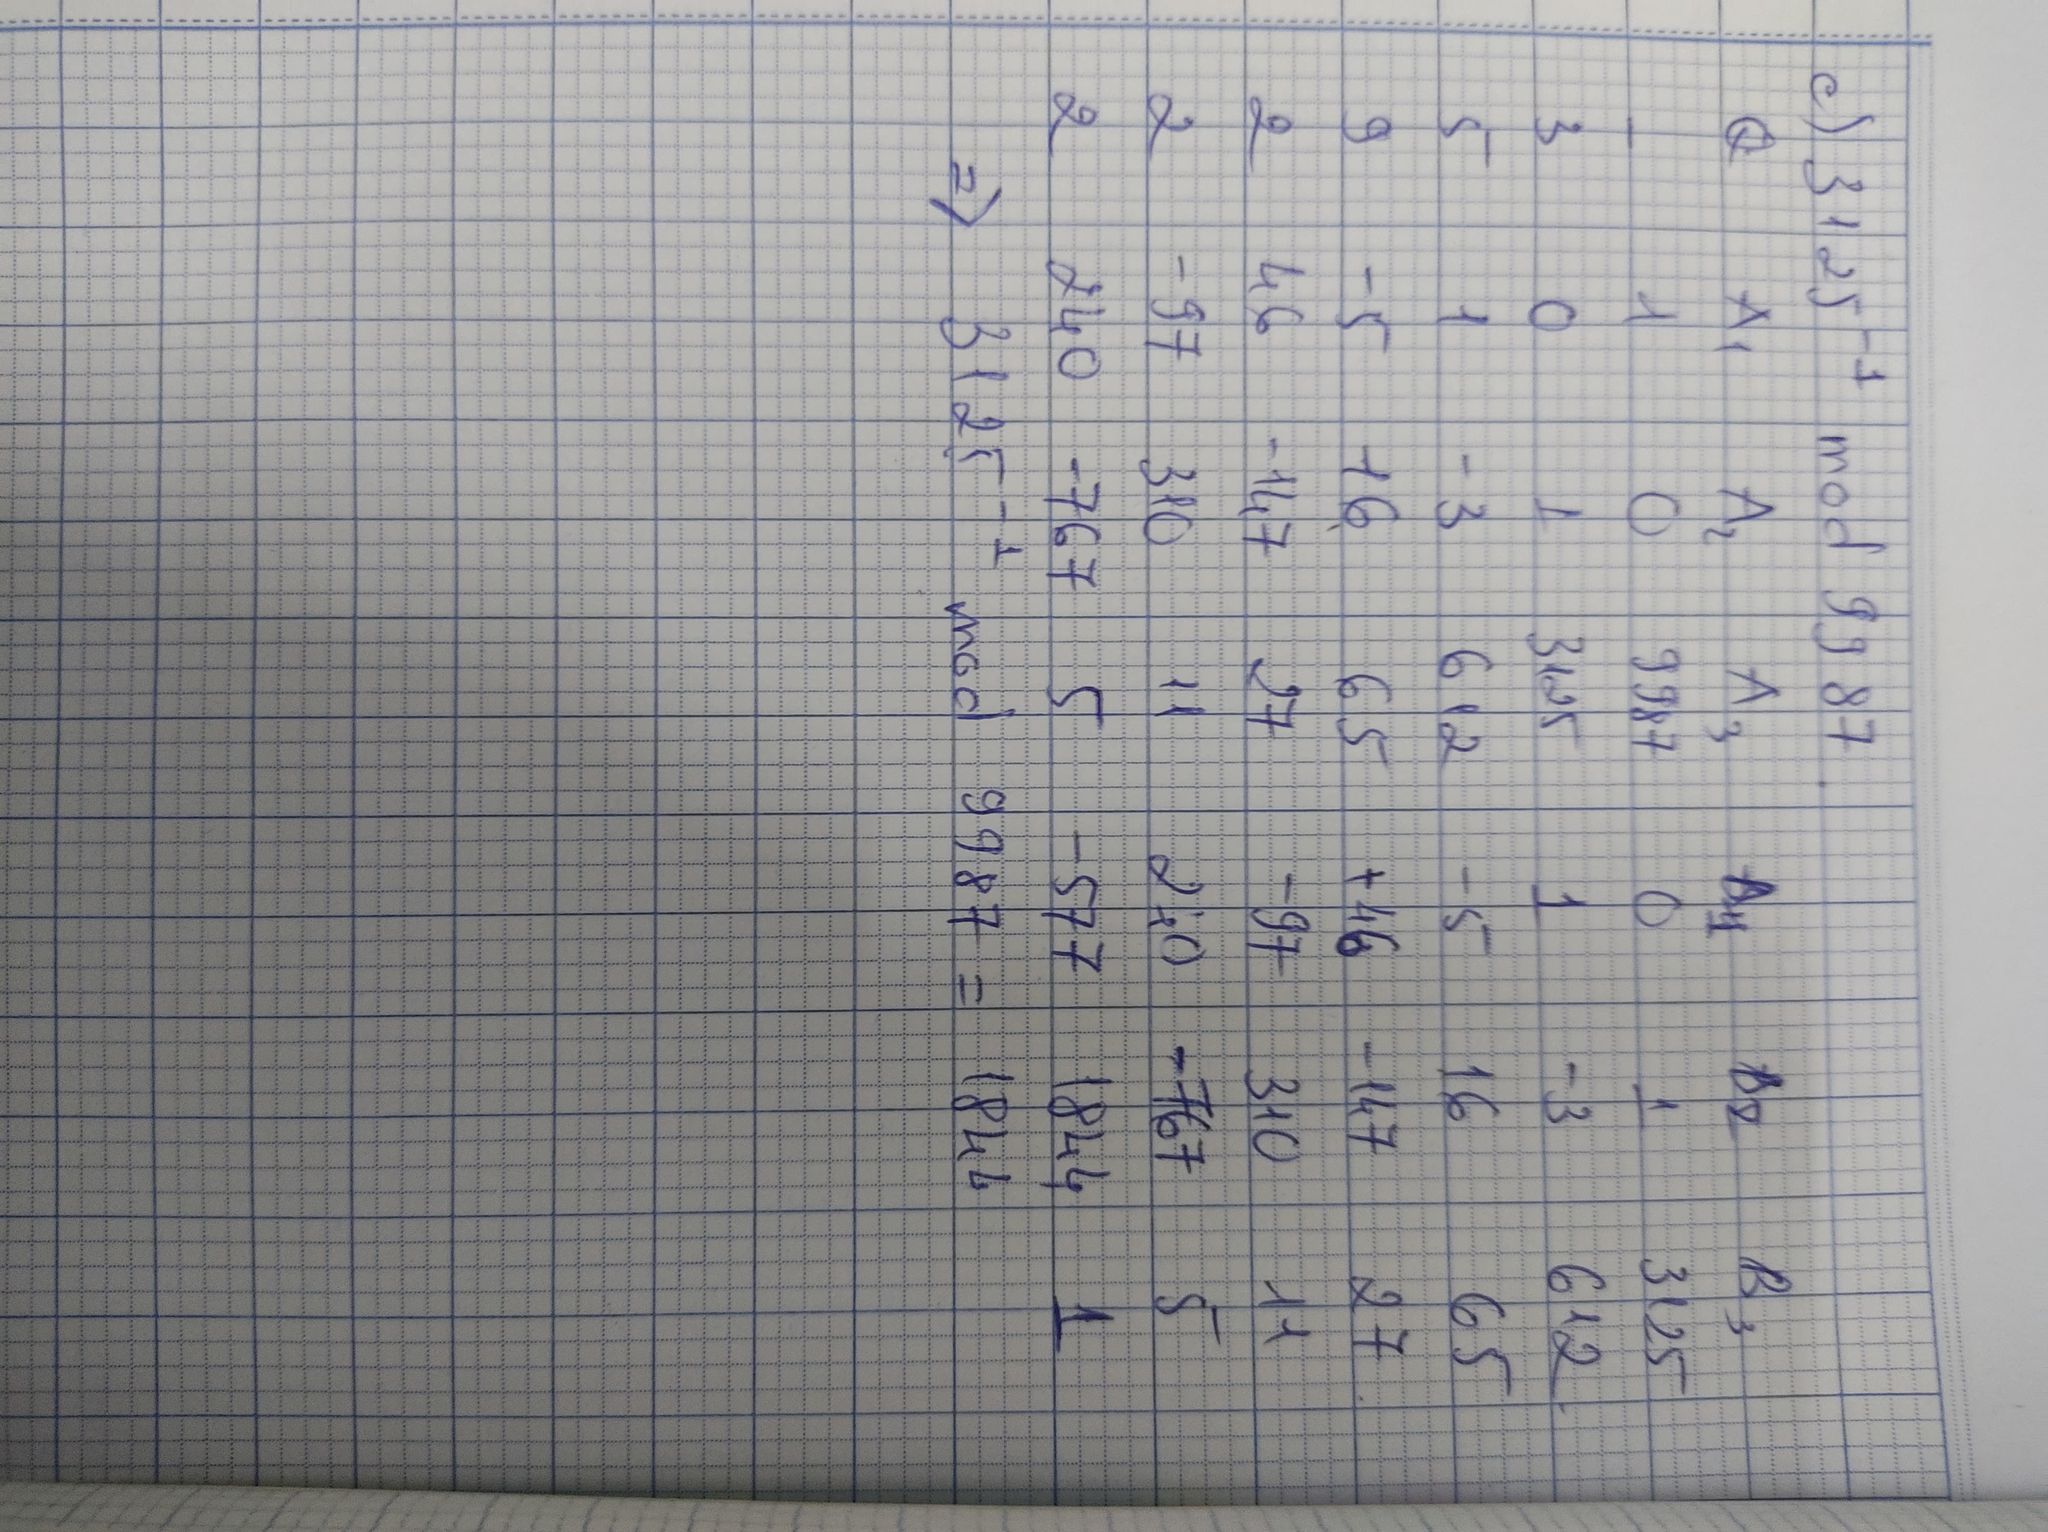 c) 3125⁻¹ mod 9987.
Q A₁ A₂ A₃ B1 B2 B₃
– 1 0 9987 0 1 3125
3 0 1 3125 1 -3 612
5 1 -3 612 -5 16 65
9 -5 16 65 +46 -147 27
2 46 -147 27 -97 310 11
2 -97 310 11 240 -767 5
2 240 -767 5 -577 1844 1
=> 3125⁻¹ mod 9987 = 1844